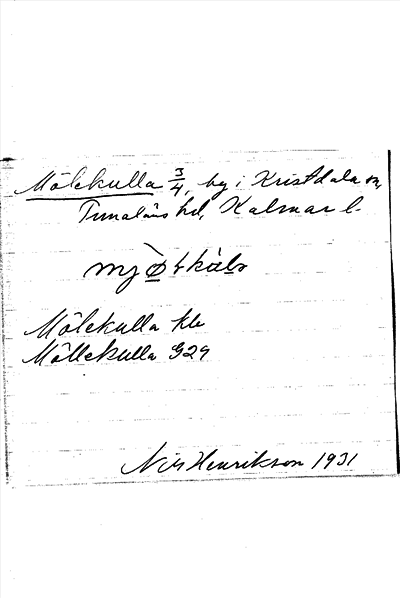 Mölekulla 3/4, by i Kristdala sn,
Tunaläns hd, Kalmar l.
Mölekulla kle
Möllekulla G29
Nils Henrikson 1931